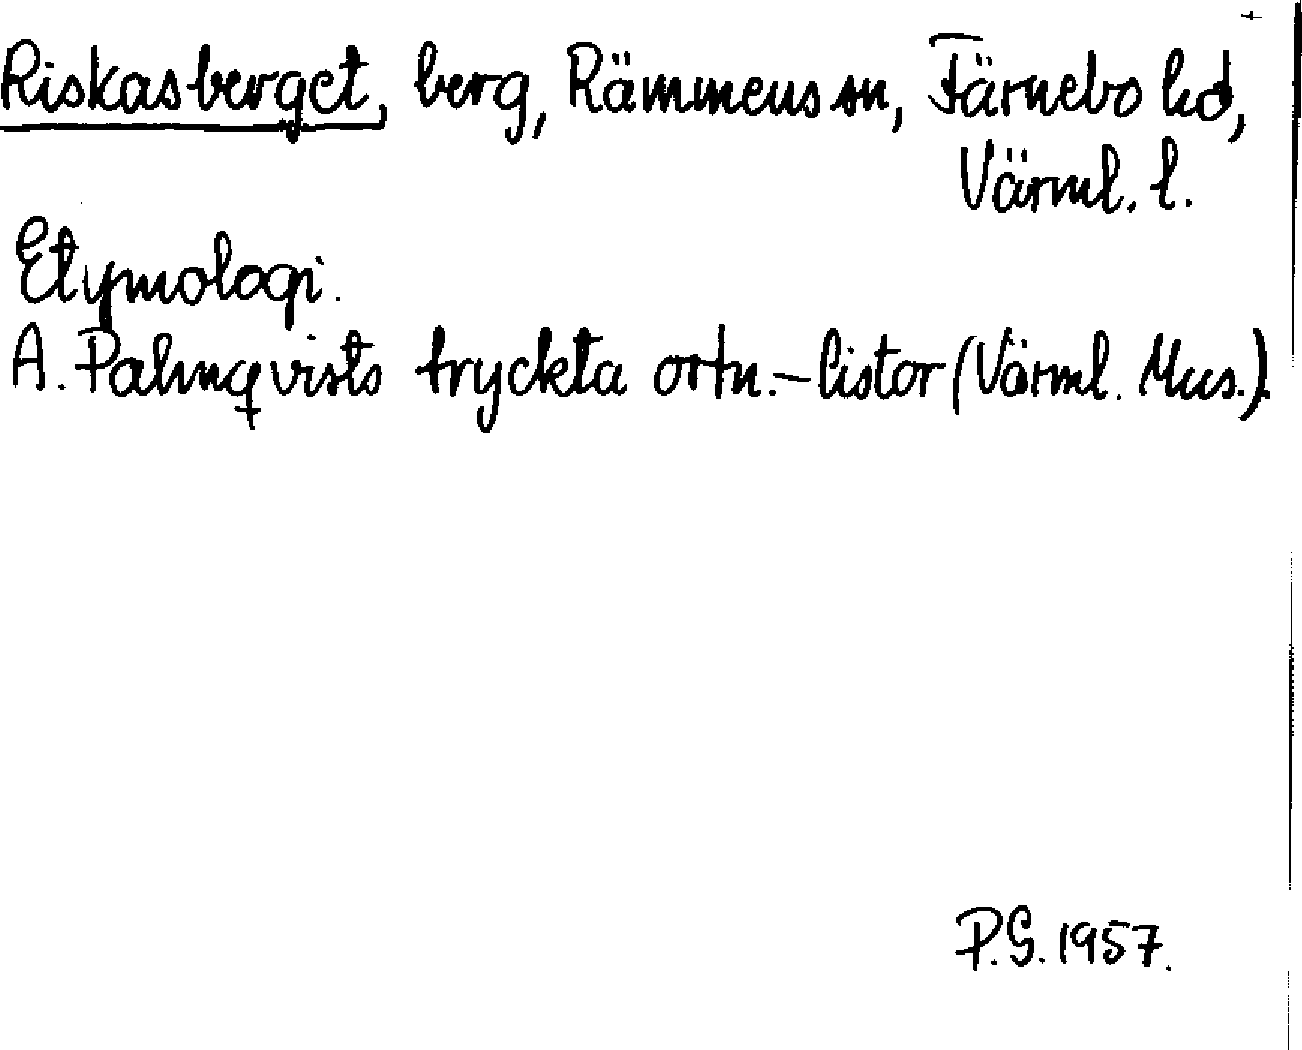 Riskasberget, berg, Rämmens sn, Färnebo hd,
Värml. l.
Etymologi.
A. Palmqvists tryckta ortn.-listor (Värml. Mus.).
P.G. 1957.